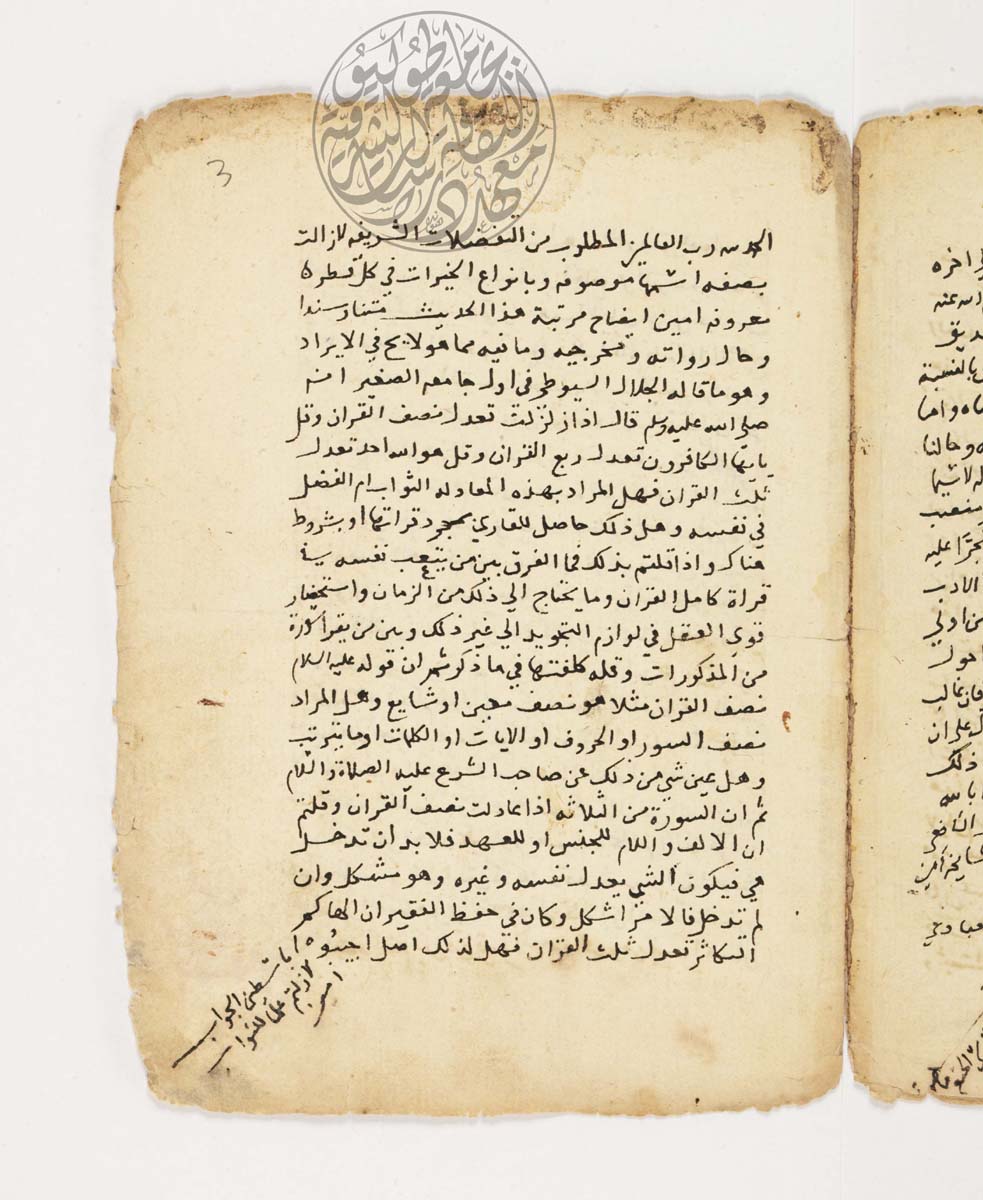 الحمد لله رب العالمين المطلوب من التفضلات الشريفه لازالت
بصفه اسمها موصوفه وبانواع الخيرات في كل قطره
معروفه امين ايضاح مرتبة هذا الحديث متنا وسندا
وحال رواته ومخرجيه وما فيه مما هو لايح في الايراد
وهو ما قاله الجلال السيوطي في اول جامعه الصغير انه
صلى الله عليه وسلم قال اذا زلزلت تعدل نصف القران وقل
يايها الكافرون تعدل ربع القران وقل هو الله احد تعدل
ثلث القران فهل المراد بهذه المعادله الثواب ام الفضل
في نفسه وهل ذلك حاصل للقاري بمجرد قراتها او بشروط
هناك واذا قلتم بذلك فما الفرق بين من يتعب نفسه في
قراة كامل القران وما يحتاج الي ذلك من الزمان واستحضار
قوى العقل في لوازم التجويد الي غير ذلك وبين من يقرأ سورة
من المذكورات وقله كلفتها في ما ذكر ثم ان قوله عليه السلام
نصف القران مثلا هو نصف معين او شايع وهل المراد
نصف السور او الحروف او الايات او الكلمات او ما يترتب
وهل عين شي من ذلك عن صاحب الشرع عليه الصلاة والسلام
ثم ان السورة من الثلاثه اذا عادلت نصف القران وقلتم
ان الالف واللام للجنس او للعهد فلا بد ان تدخل
هي فيكون الشي يعدل نفسه وغيره وهو مشكل وان
لم تدخل فالامر اشكل وكان في حفظ الفقير ان الهاكم
التكاثر تعدل ثلث القران فهل لذلك اصل اجيبوه
الجواب
لازلتم على الصواب
امين
3
معهد الثقافة والدراسات الشرقية
جامعة طوكيو